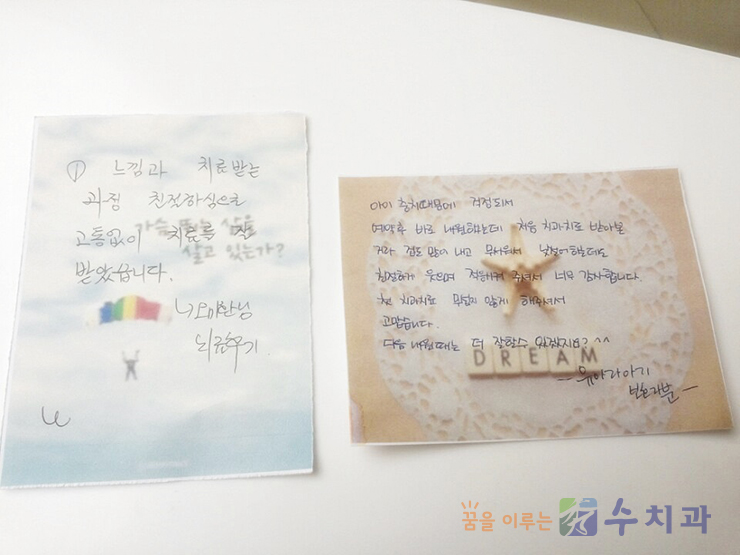 ① 느낌과 치료받는
과정 친절하심으로
고통없이 치료를 잘
받았습니다.
가슴 뛰는 삶을
살고 있는가?
치료후기
아이 충치때문에 걱정되서
예약후 바로 내원했는데 처음 치과치료 받아보는
거라 겁도 많이 내고 무서워서 낯설어했는데도
친절하게 웃으며 적응시켜 주셔서 너무 감사합니다.
첫 치과치료 무섭지 않게 해주셔서
고맙습니다.
다음 내원때는 더 잘할수 있겠지요? ^^
DREAM
보호자분
꿈을 이루는 수치과